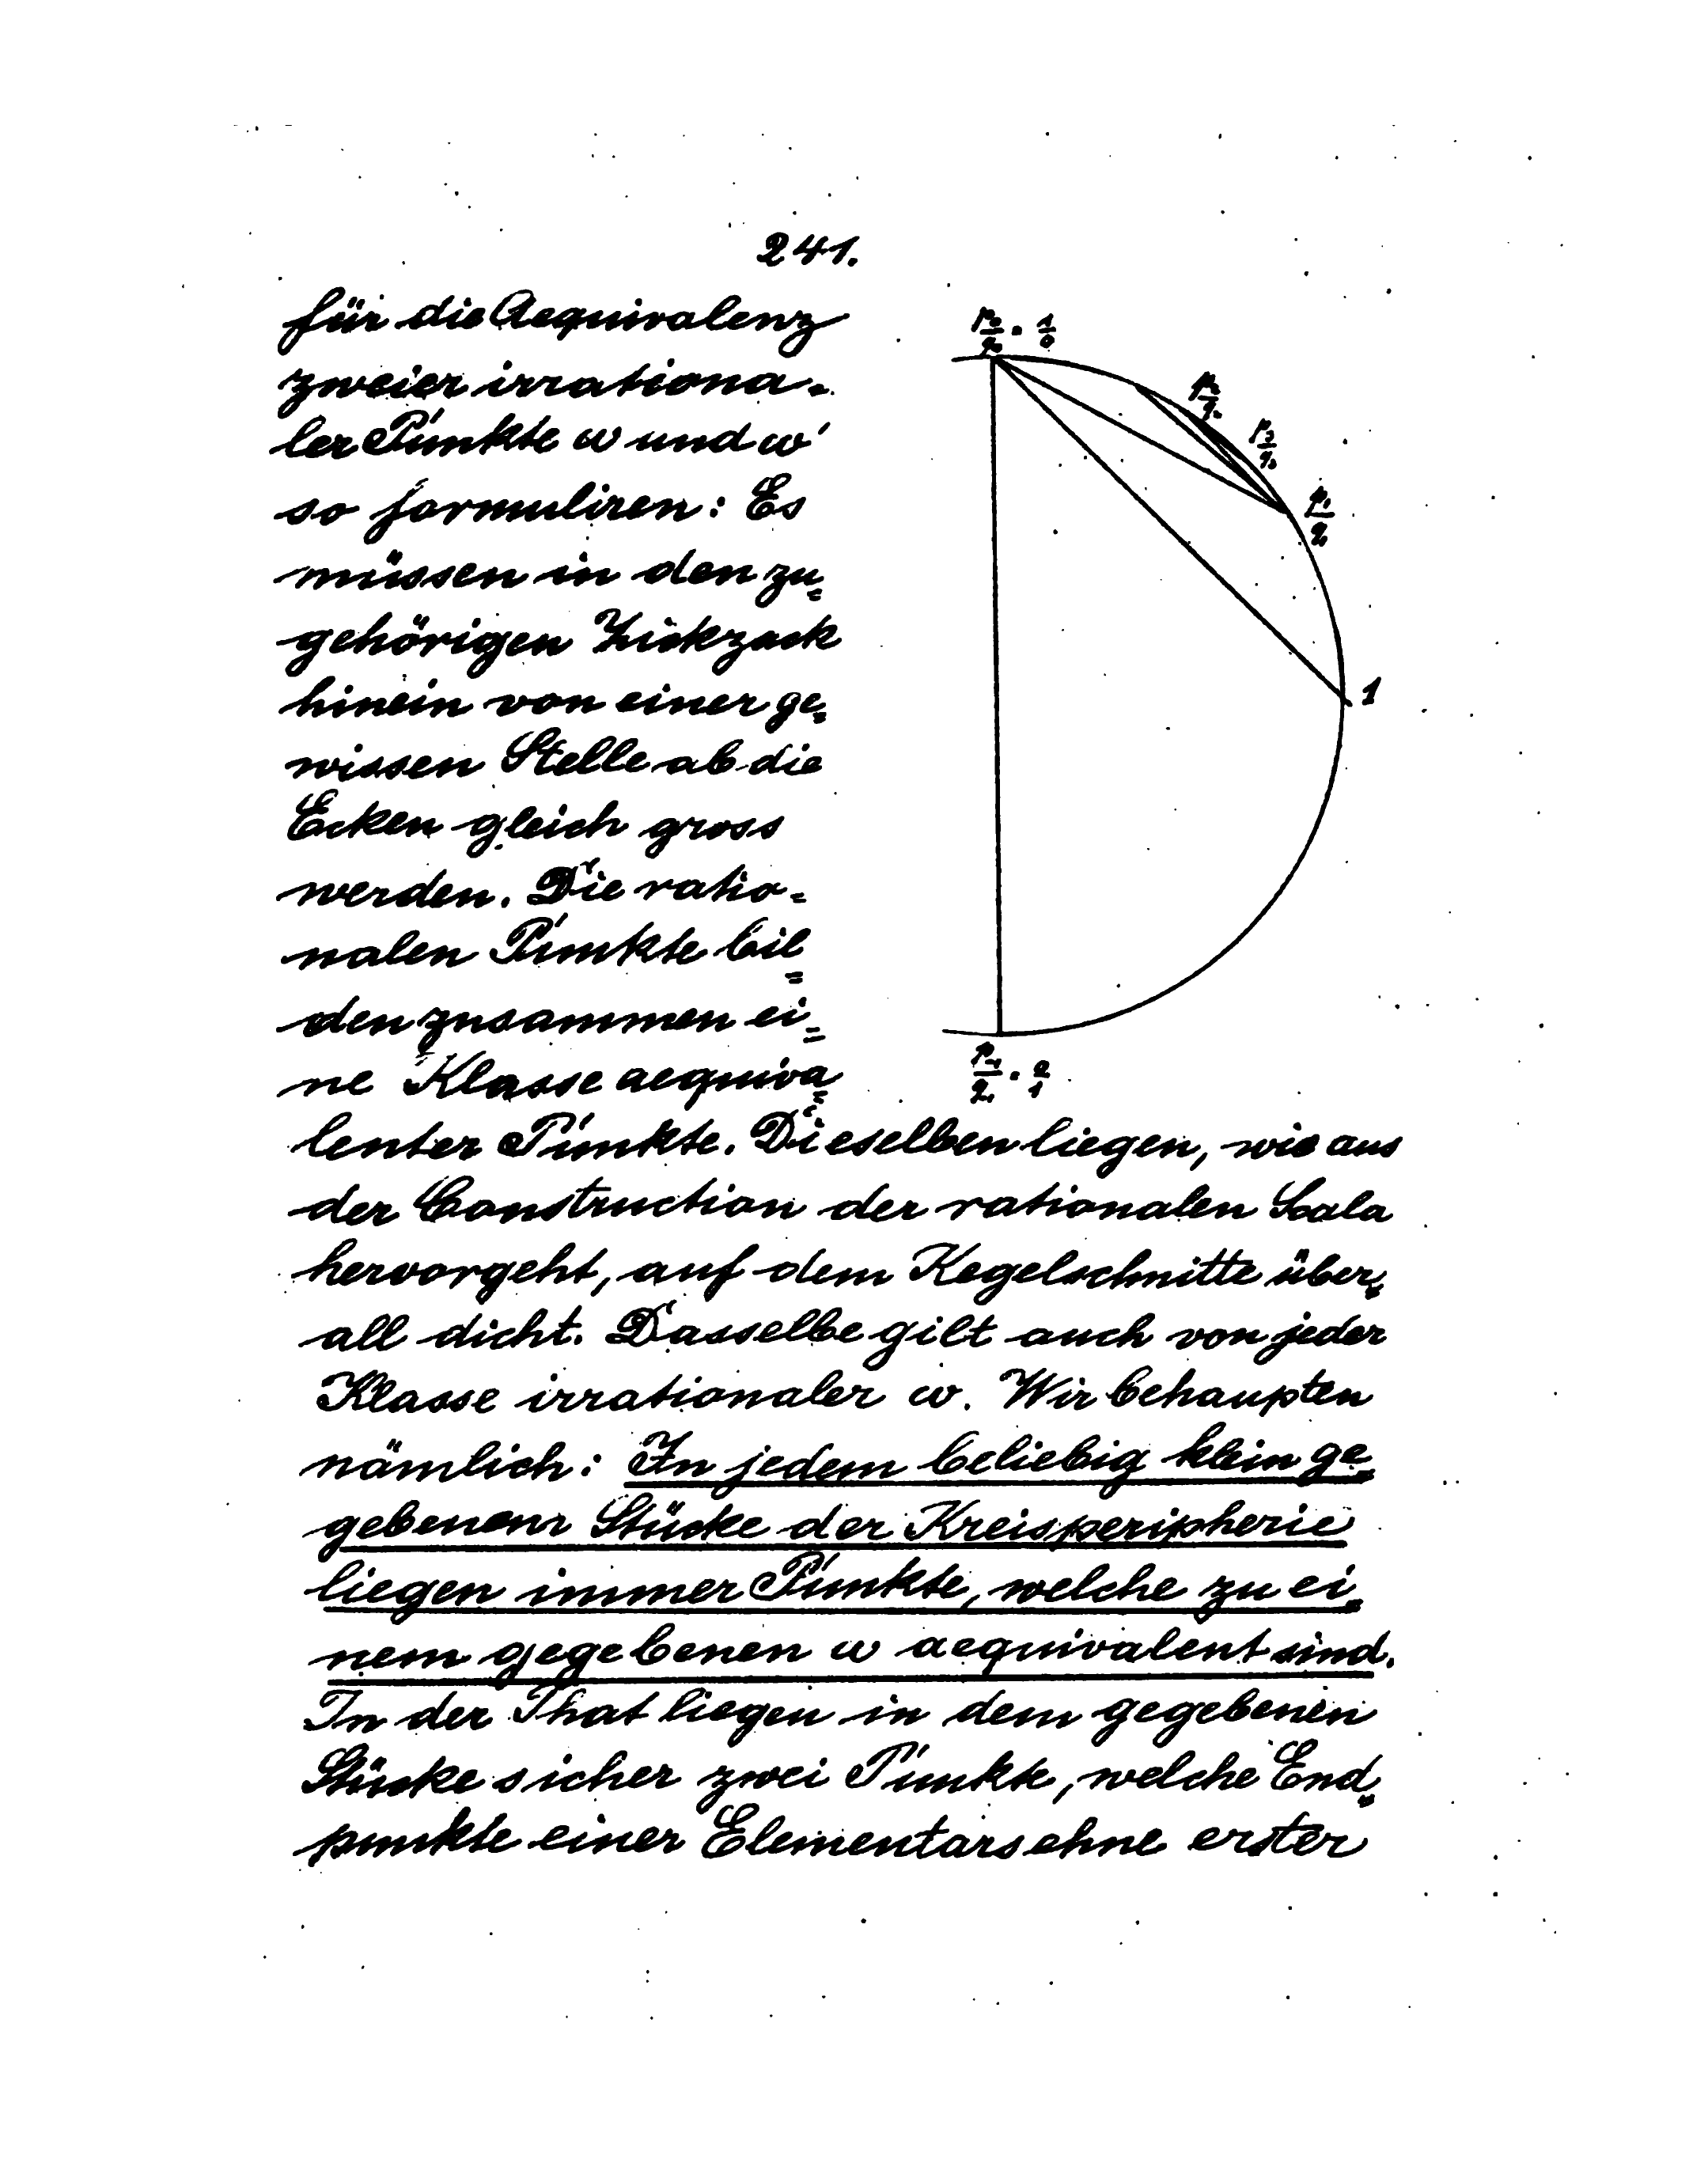 241.
für die Aequivalenz
zweier irrationa-
ler Punkte ω und ω'
so formuliren: Es
müssen in den zu=
gehörigen Zickzack
hinein von einer ge=
wissen Stelle ab die
Ecken gleich gross
werden. Die ratio=
nalen Punkte bil=
den zusammen ei=
ne Klasse aequiva=
p₀/q₀ = 1/0
p₂/q₂
p₃/q₃
p₁/q₁
1
p₋₁/q₋₁ = 0/1
lenter Punkte. Dieselben liegen, wie aus
der Construction der rationalen Scala
hervorgeht, auf dem Kegelschnitte über=
all dicht. Dasselbe gilt auch von jeder
Klasse irrationaler ω. Wir behaupten
nämlich: In jedem beliebig klein ge=
gebenem Stücke der Kreisperipherie
liegen immer Punkte, welche zu ei=
nem gegebenen ω aequivalent sind.
In der That liegen in dem gegebenen
Stücke sicher zwei Punkte, welche End=
punkte einer Elementarsehne erster